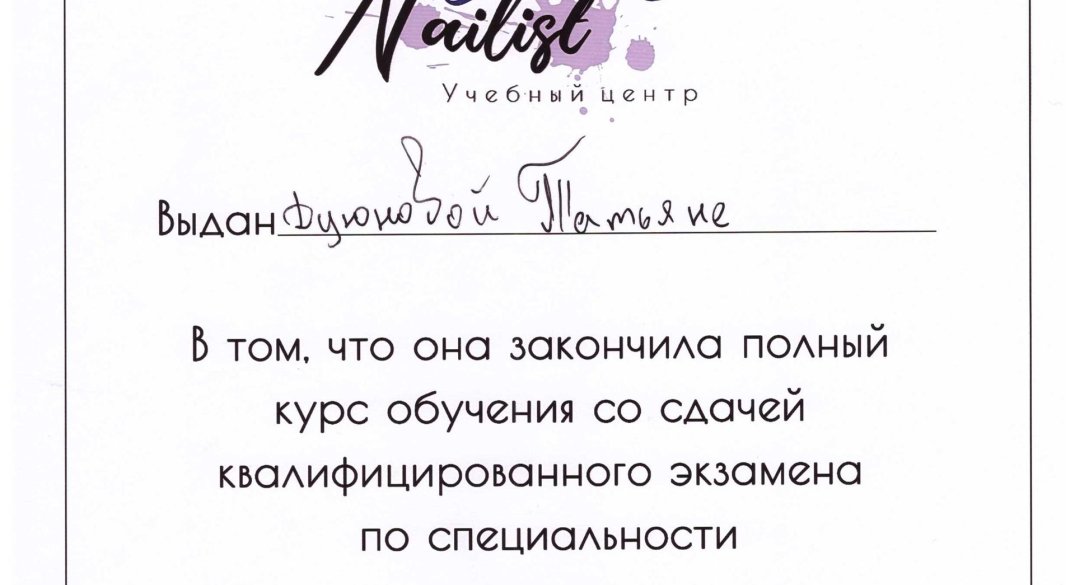 Nailist
Учебный центр
Выдан Дуюновой Татьяне
В том, что она закончила полный
курс обучения со сдачей
квалифицированного экзамена
по специальности